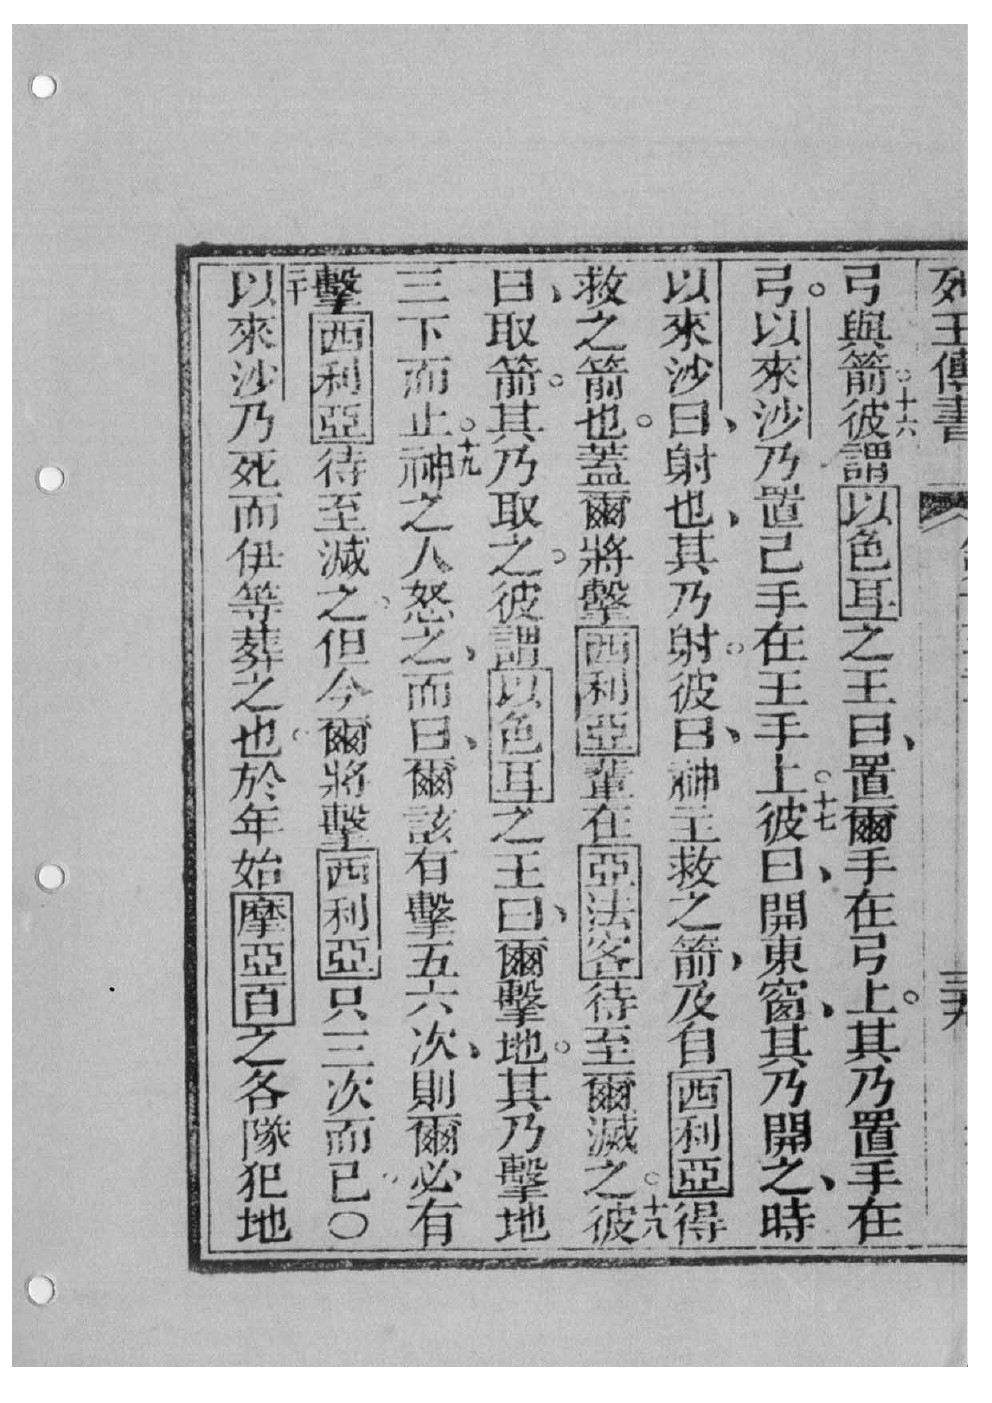 列王傳書
弓與箭。十六彼謂以色耳之王曰、置爾手在弓上。其乃置手在
弓。以來沙乃置己手在王手上。十七彼曰、開東窗、其乃開之、時
以來沙曰、射也、其乃射。彼曰、神王救之箭、及自西利亞得
救之箭也。蓋爾將擊西利亞輩在亞法客待至爾滅之。十八彼
曰、取箭。其乃取之。彼謂以色耳之王曰、爾擊地。其乃擊地
三下而止。十九神之人怒之、而曰、爾該有擊五六次、則爾必有
擊西利亞待至滅之。但今爾將擊西利亞只三次而已。〇
二十以來沙乃死而伊等葬之也。於年始摩亞百之各隊犯地